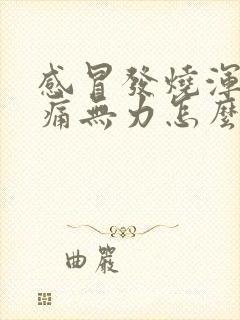 感冒發燒渾
痛無力怎麼
曲嚴